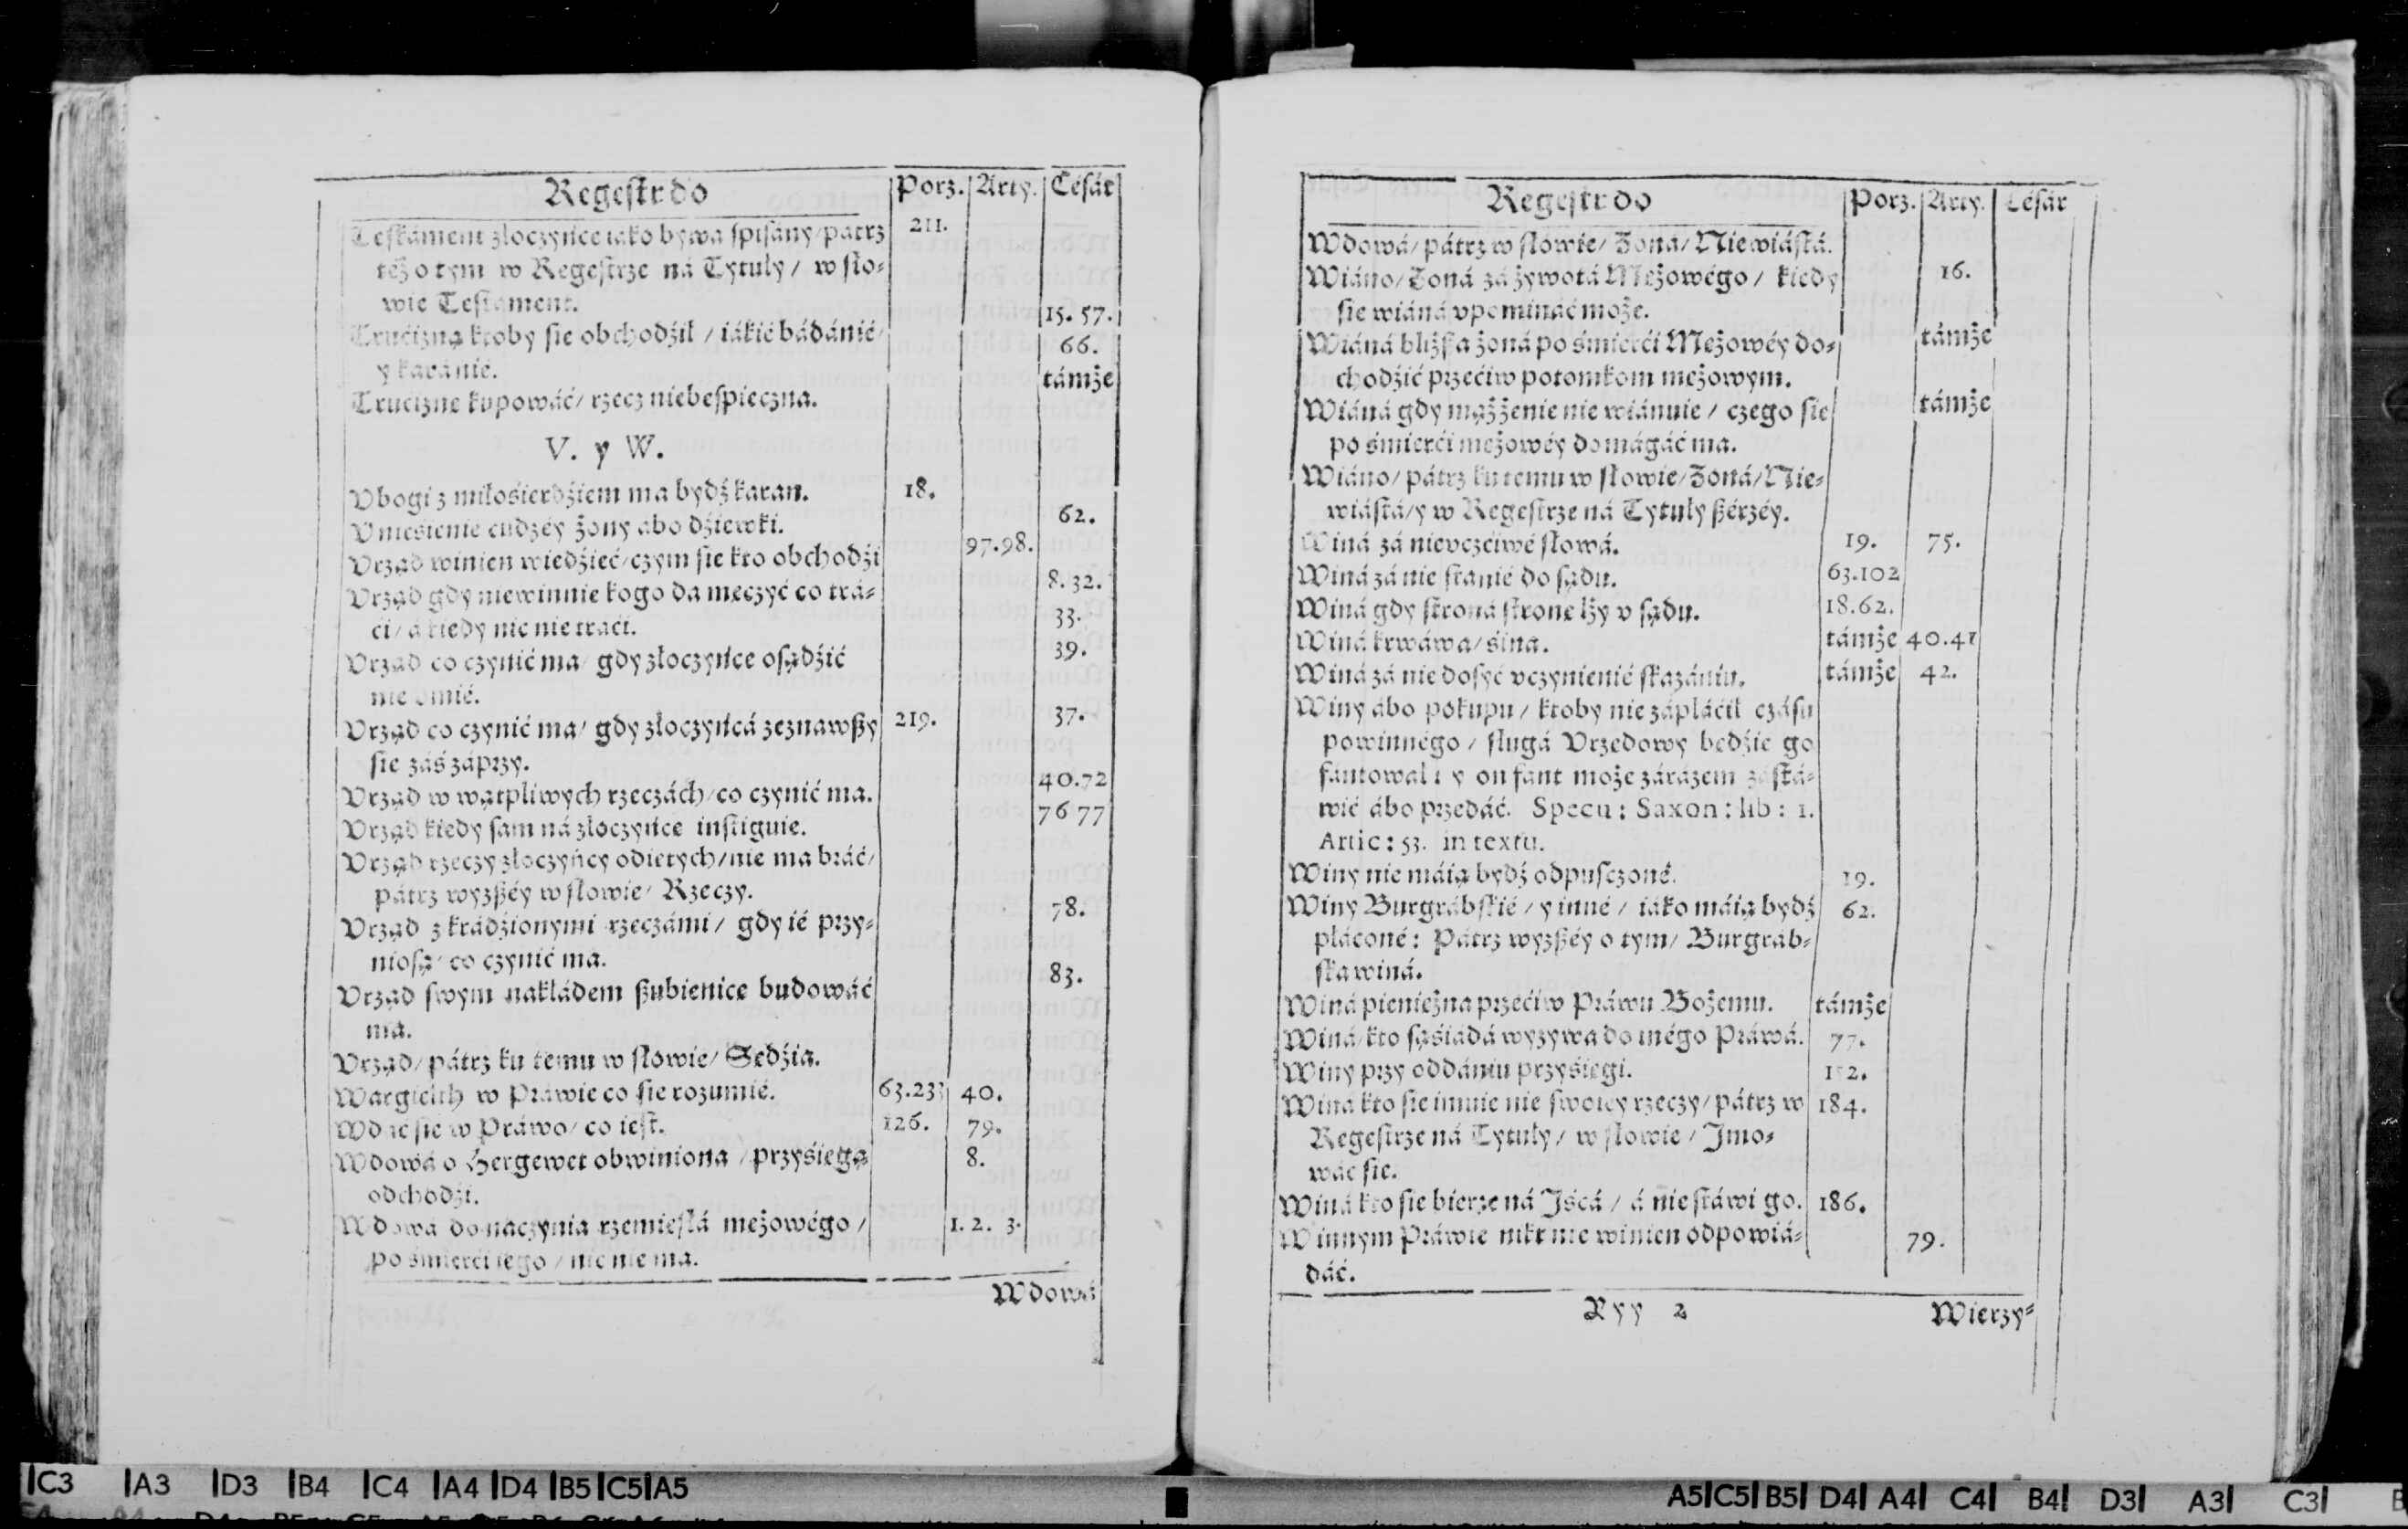 Regestr do Porz. Arty. Césár
Testáment złoczyńce iáko bywa spisány / pátrz 211.
téż o tym w Regestrze ná Tytuły / w sło-
wie Testament. 15. 57.
Trucizną ktoby sie obchodźił / iákié bádánié /
y karánié. 66.
Trucizne kupowáć / rzecz niebespieczna. támże
V. y W.
Vbogi z miłośierdźiem ma bydź karan. 18.
Vniesienie cudzéy żony ábo dźiewki. 62.
Vrząd winien wiedźieć / czym sie kto obchodźi 97.98.
Vrząd gdy niewinnie kogo da meczyć co trá- 8. 32.
ci / a kiedy nic nie tráci. 33.
Vrząd co czynić ma / gdy złoczyńce osądźić 39.
nie vmié.
Vrząd co czynić ma / gdy złoczyńcá zeznawszy 219. 37.
sie záś záprzy.
Vrząd w wątpliwych rzeczách / co czynić ma. 40.72
Vrząd kiedy sam ná złoczyńce instiguie. 76 77
Vrząd rzeczy złoczyńcy odietych / nie ma bráć /
pátrz wyższéy w słowie / Rzeczy.
Vrząd z krádźionymi rzeczámi / gdy ié przy- 78.
niosą / co czynić ma.
Vrząd swym nakłádem szubienice budowáć 83.
má.
Vrząd / pátrz ku temu w słowie / Sedźia.
Wargielth w Práwie co sie rozumié. 63.233 40.
Wdáć sie w Práwo / co iest. 126. 79.
Wdowá o Hergewet obwiniona / przyśiegą 8.
odchodźi.
Wdowá do naczynia rzemieslá meżowégo / 1. 2. 3.
po śmierći iego / nic nie ma.
Wdowá
Regestr do Porz. Arty. Césár
Wdowá / pátrz w słowie / Zona / Niewiástá.
Wiáno / Zoná zá żywotá Meżowégo / kiedy 16.
sie wiáná vpomináć może.
Wiáná bliższa żoná po śmierći Meżowéy do- támże
chodźić przećiw potomkom meżowym.
Wiáná gdy mąż żenie nie wiánuie / czego sie támże
po śmierći meżowéy domágáć ma.
Wiáno / pátrz ku temu w słowie / Zoná / Nie-
wiástá / y w Regestrze ná Tytuły szérzéy.
Winá zá nieuczćiwé słowá. 19. 75.
Winá zá nie stánié do sądu. 63.102
Winá gdy stroná strone lży v sądu. 18.62.
Winá krwáwa / śina. támże 40.41
Winá zá nie dosyć vczynienié skazániu. támże 42.
Winy ábo pokupu / ktoby nie zápłáćił czásu
powinnégo / sługá Vrzedowy bedźie go
fántował: y on fant może zárázem zástá-
wić ábo przedáć. Specu: Saxon: lib: 1.
Artic: 53. in textu.
Winy nie máią bydź odpusczoné. 19.
Winy Burgrábskié / y inné / iáko máią bydź 62.
płáconé: Pátrz wyższéy o tym / Burgráb-
ska winá.
Winá pieniężna przećiw Práwu Bożemu. támże
Winá / kto sąśiádá wyzywa do inégo Práwá. 77.
Winy przy oddániu przyśiegi. 152.
Winá kto sie imuie nie swoiey rzeczy / pátrz w 184.
Regestrze ná Tytuły / w słowie / Jmo-
wáć sie.
Winá kto sie bierze ná Jścá / á nie stáwi go. 186.
W innym Práwie nikt nie winien odpowiá- 79.
dáć.
Yyy 2 Wierzy-
C3 A3 D3 B4 C4 A4 D4 B5 C5 A5
A5 C5 B5 D4 A4 C4 B4 D3 A3 C3